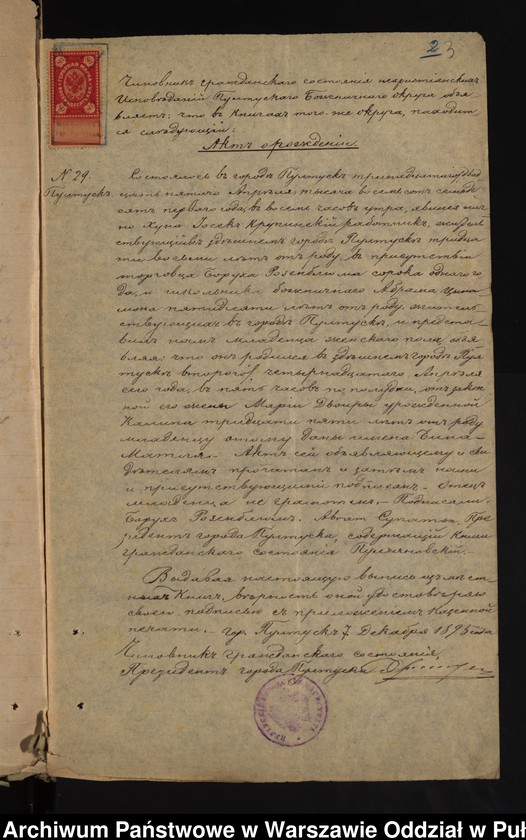 23
Чиновник гражданского состояния нехристианских
Исповѣданій Пултускаго Божничнаго округа объ
являетъ: что въ книгахъ того же округа, находит
ся слѣдующій:
Актъ о рожденіи.
№ 29.
Пултускъ.
Состоялось въ городѣ Пултускѣ тринадцатаго двад
цать пятаго Апрѣля, тысяча восемьсотъ семьде
сятъ перваго года, въ восемь часовъ утра, явился лич
но Хуна Іосекъ Крупинскій работникъ, жительь
ствующій въ здѣшнемъ городѣ Пултускѣ тридца
ти восьми лѣтъ отъ роду, въ присутствіи
торговца Боруха Розенблюма сорока одного го
да, и школьника божничнаго Абрама
пятидесяти лѣтъ отъ роду, житель
ствующихъ въ городѣ Пултускѣ, и предста
вилъ намъ младенца женскаго пола, объя
вляя: что онъ родился въ здѣшнемъ городѣ Пул
тускѣ втораго четырнадцатаго Апрѣля
сего года, въ пять часовъ по полудни, отъ закон
ной его жены Маріи Двойры урожденной
Калина тридцати пяти лѣтъ отъ роду
младенцу этому даны имена Бина-
Матля. Актъ сей объявляющему и сви
дѣтелямъ прочитанъ и затѣмъ нами
и присутствующими подписанъ. Отецъ
младенца не грамотенъ. Подписали:
Борухъ Розенблюмъ. Президентъ
города Пултуска, содержащій книги
гражданскаго состоянія
Выдавая настоящую выпись изъ мѣст
ныхъ книгъ, вѣрность оной удостовѣряю
своею подписью съ приложеніемъ казенной
печати. гор. Пултускъ 7 Декабря 1895 года
Чиновникъ гражданскаго состоянія,
Президентъ города Пултуска
Archiwum Państwowe w Warszawie Oddział w Puł